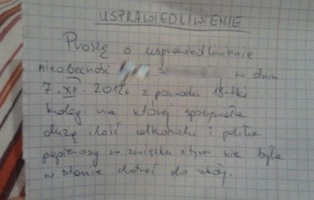 USPRAWIEDLIWIENIE
Proszę o usprawiedliwienie
nieobecność w dniu
7. XI. 2012r z powodu 18-tki
kolegi na którą spożywała
dużą ilość alkoholu i paliła
papierosy w związku z tym nie była
w stanie dotrzeć do szkoły.